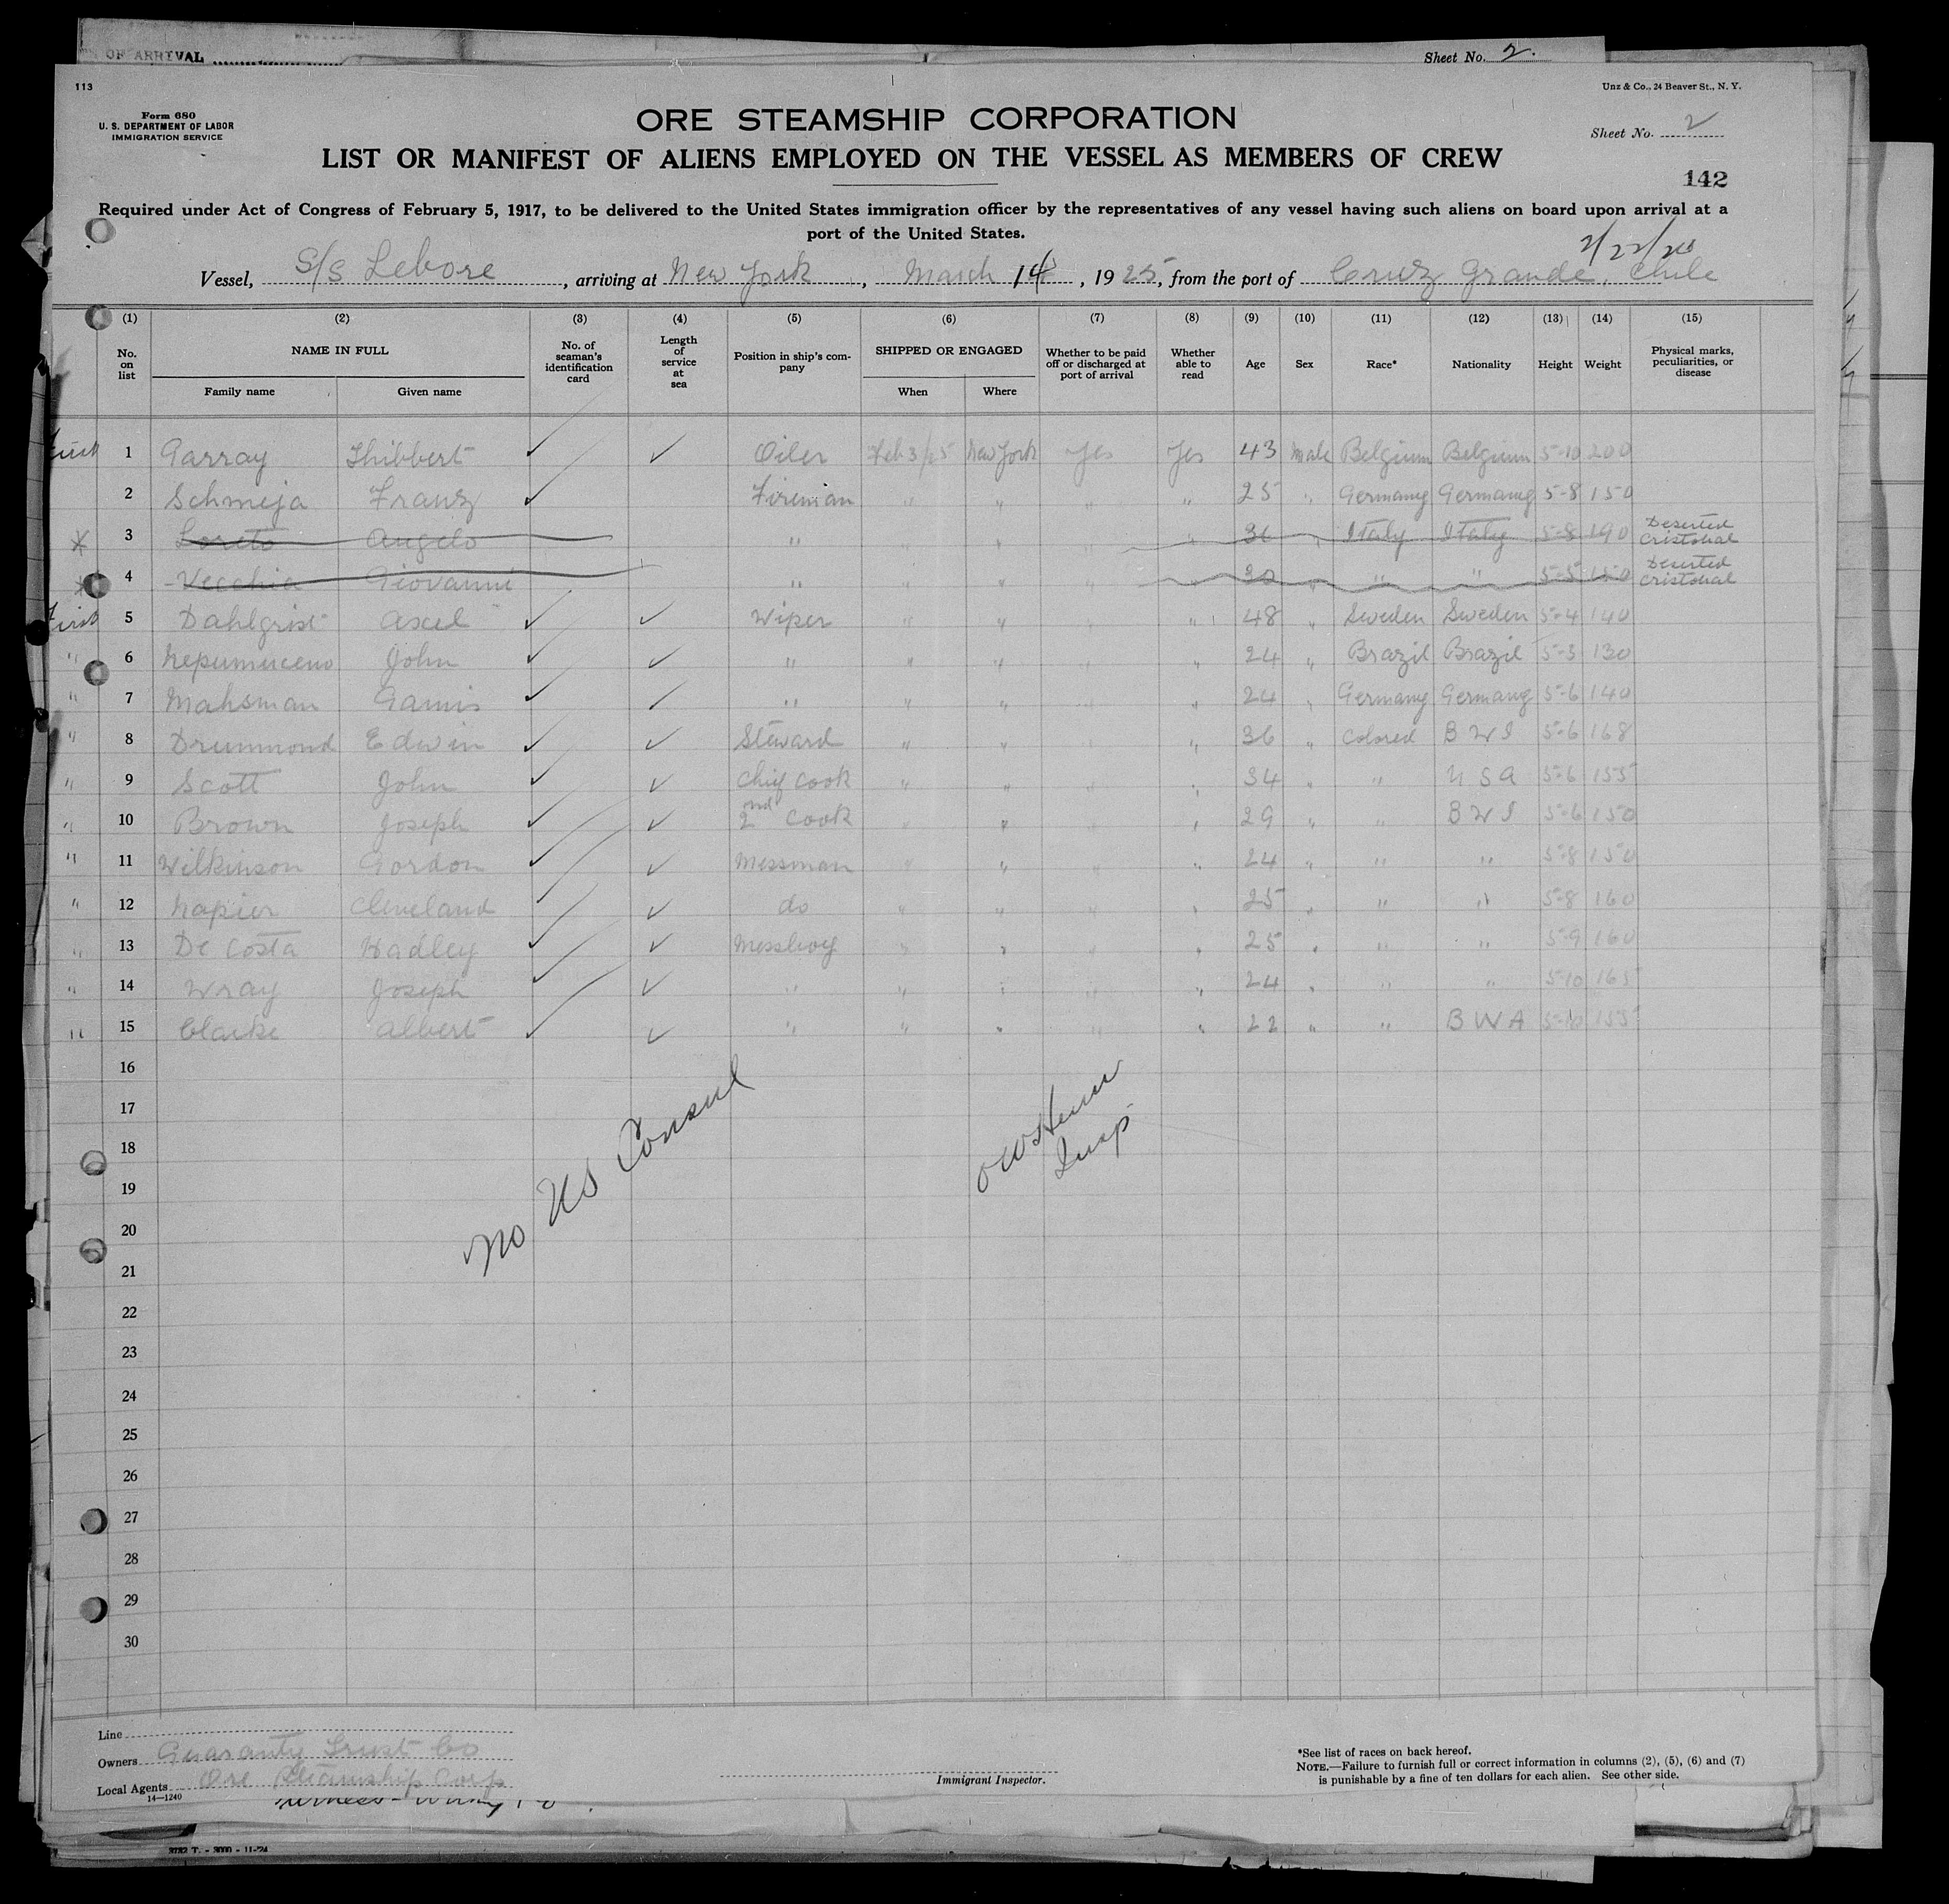 OF ARRIVAL
Sheet No. 2.
113
Unz & Co., 24 Beaver St., N. Y.
Form 680
U. S. DEPARTMENT OF LABOR
IMMIGRATION SERVICE
ORE STEAMSHIP CORPORATION
Sheet No. 2
LIST OR MANIFEST OF ALIENS EMPLOYED ON THE VESSEL AS MEMBERS OF CREW
142
Required under Act of Congress of February 5, 1917, to be delivered to the United States immigration officer by the representatives of any vessel having such aliens on board upon arrival at a
port of the United States.
Vessel, S/S Lebore, arriving at New York, March 14, 1925, from the port of Cruz Grande, Chile
(1) (2) (3) (4) (5) (6) (7) (8) (9) (10) (11) (12) (13) (14) (15)
No. on list
NAME IN FULL
Family name
Given name
No. of seaman's identification card
Length of service at sea
Position in ship's company
SHIPPED OR ENGAGED
When
Where
Whether to be paid off or discharged at port of arrival
Whether able to read
Age
Sex
Race*
Nationality
Height
Weight
Physical marks, peculiarities, or disease
First 1 Garray Thibbert ✓ ✓ Oiler Feb 3/25 New York Yes Yes 43 Male Belgium Belgium 5-10 200
2 Schmeja Franz ✓ Fireman " " " " 25 " Germany Germany 5-8 150
x 3 Loreto Angelo " " " " " 36 " Italy Italy 5-8 190 Deserted Cristobal
x 4 Vecchia Giovanni " " " " " 30 " " " 5-5 150 Deserted Cristobal
First 5 Dahlgrist Axel ✓ ✓ Wiper " " " " 48 " Sweden Sweden 5-4 140
" 6 Nepumuceno John ✓ ✓ " " " " " 24 " Brazil Brazil 5-3 130
" 7 Mahsman Gamis ✓ ✓ " " " " " 24 " Germany Germany 5-6 140
" 8 Drummond Edwin ✓ ✓ Steward " " " " 36 " Colored B W I 5-6 168
" 9 Scott John ✓ ✓ Chief Cook " " " " 34 " " U S A 5-6 155
" 10 Brown Joseph ✓ ✓ 2nd Cook " " " " 29 " " B W I 5-6 150
" 11 Wilkinson Gordon ✓ ✓ Messman " " " " 24 " " " 5-8 150
" 12 Napier Cleveland ✓ ✓ do " " " " 25 " " " 5-8 160
" 13 De Costa Hadley ✓ ✓ Messboy " " " " 25 " " " 5-9 160
" 14 Wray Joseph ✓ ✓ " " " " " 24 " " " 5-10 165
" 15 Clarke Albert ✓ ✓ " " " " " 22 " " B W A 5-10 155
16
17
18
19
20
21
22
23
24
25
26
27
28
29
30
No US Consul
Insp
Line
Owners Guaranty Trust Co
Local Agents Ore Steamship Corp
14—1240
Immigrant Inspector.
*See list of races on back hereof.
NOTE.—Failure to furnish full or correct information in columns (2), (5), (6) and (7)
is punishable by a fine of ten dollars for each alien. See other side.